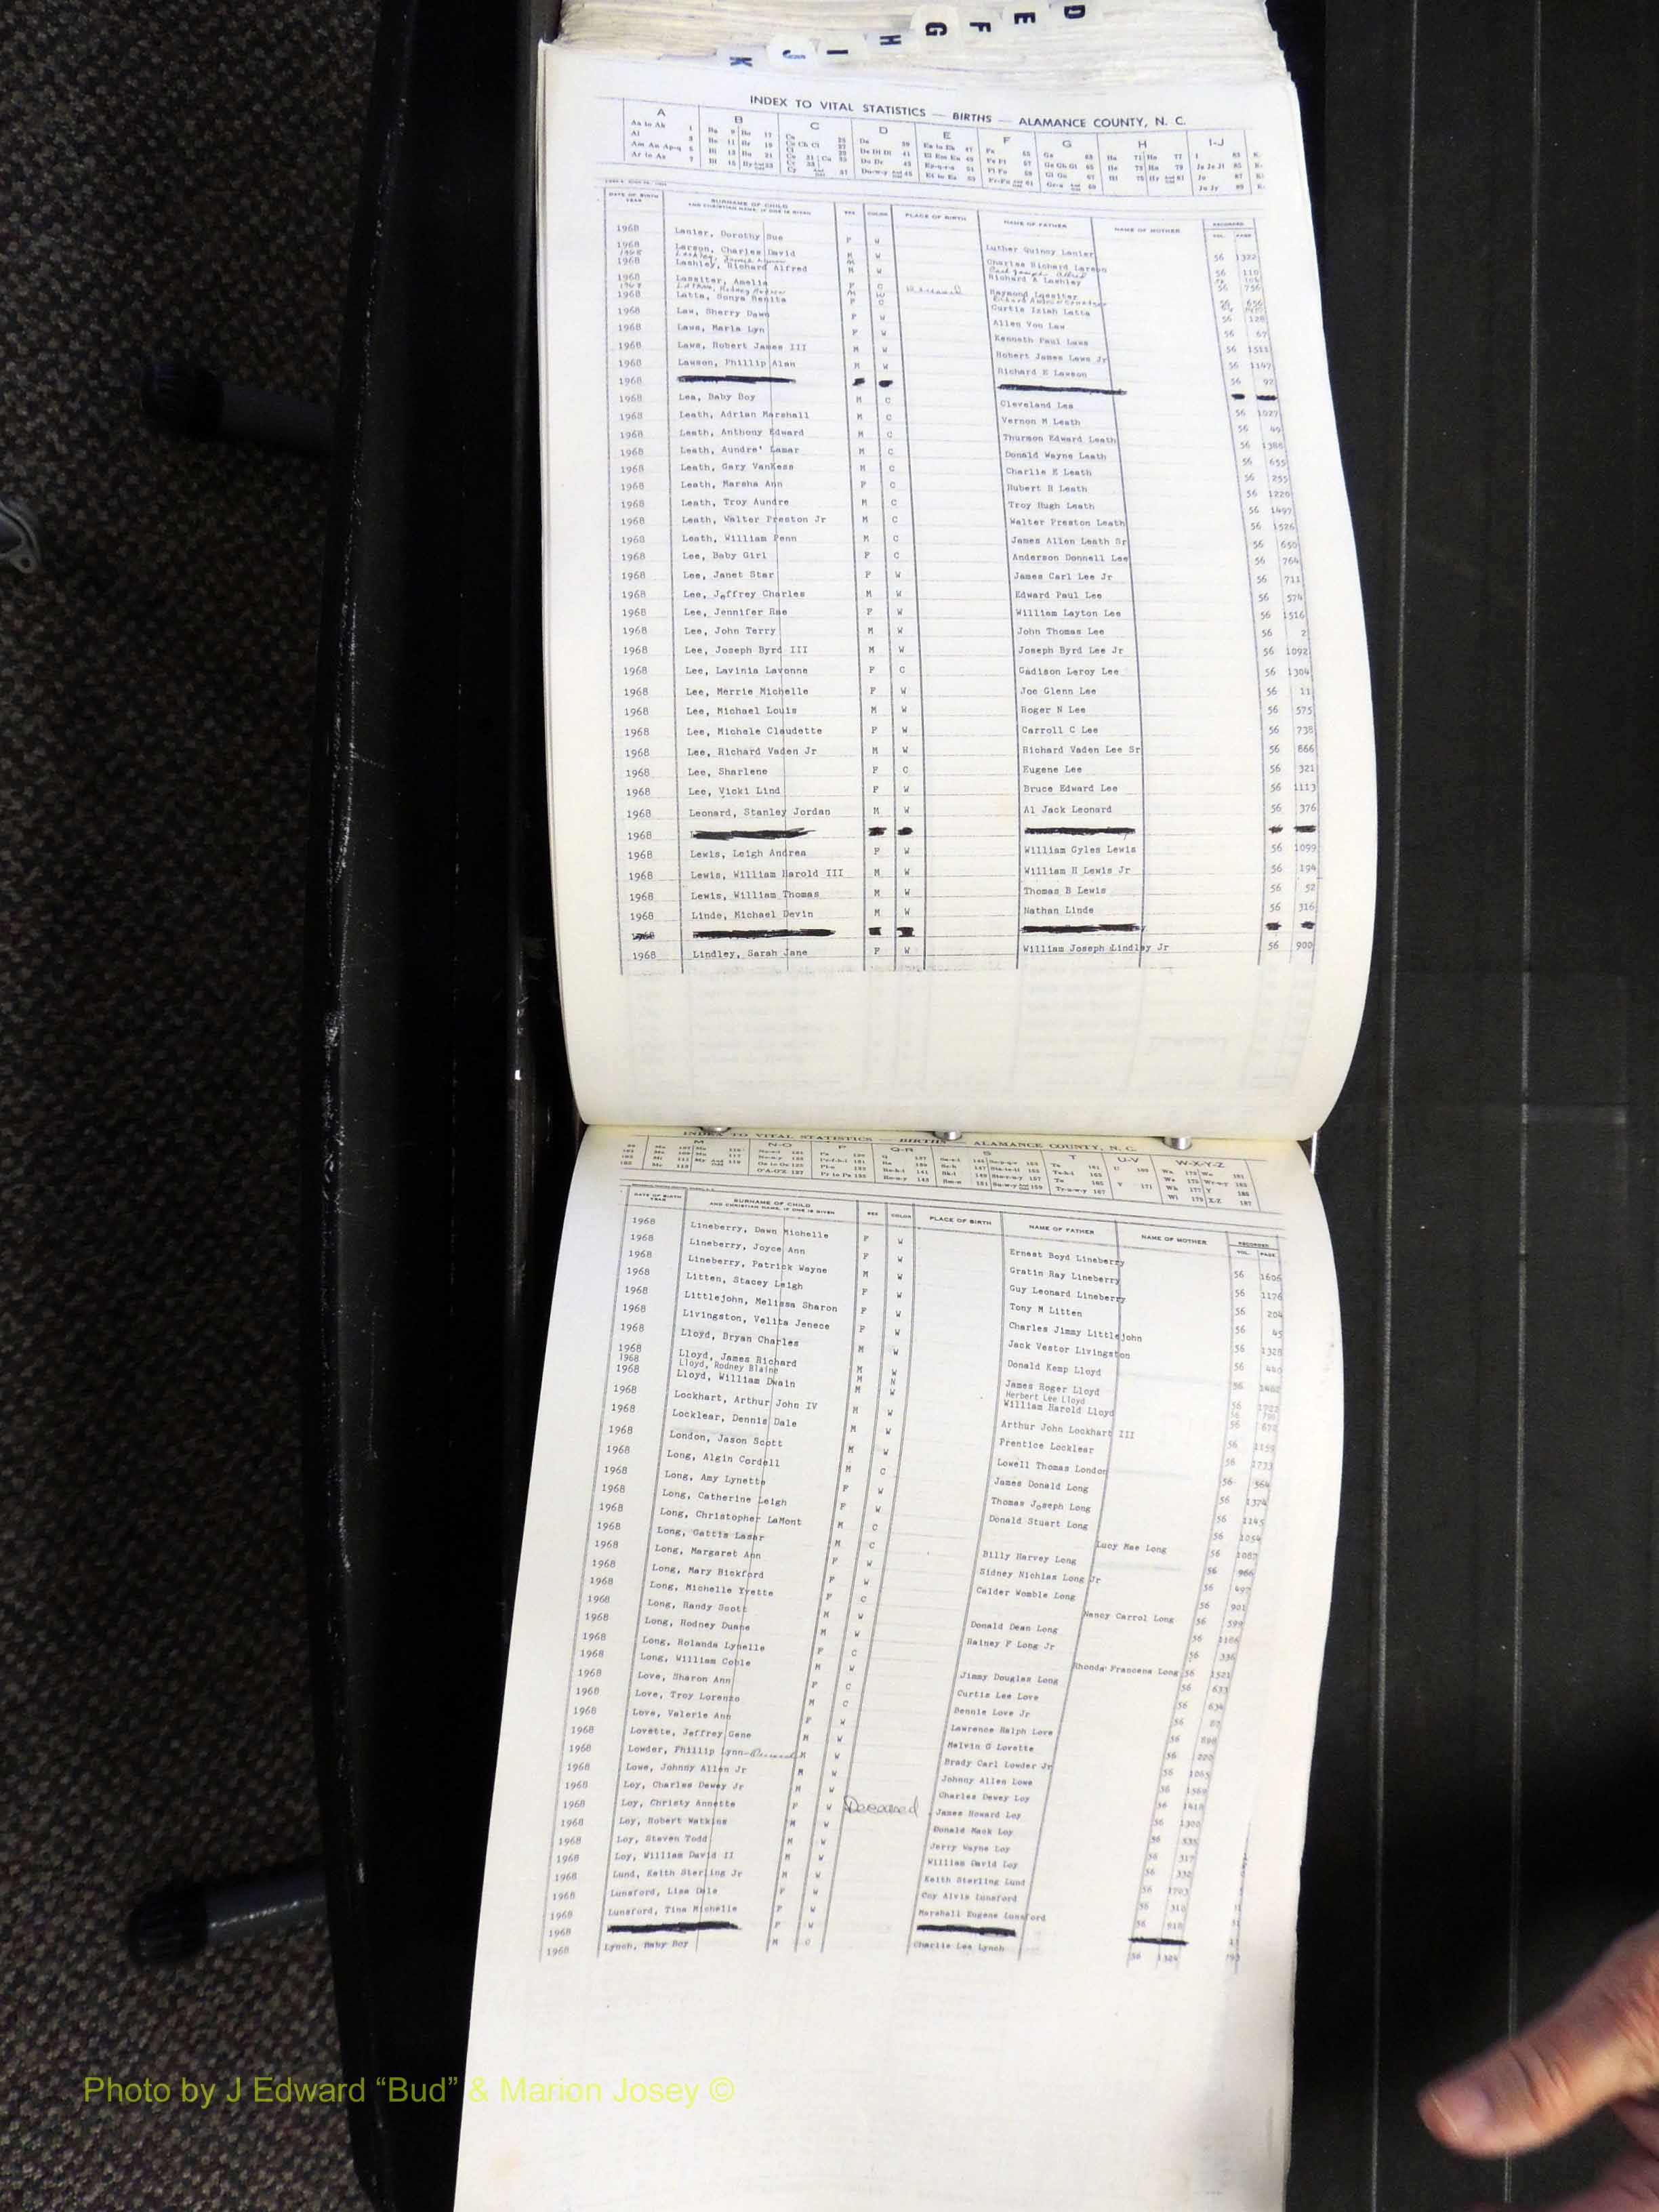 D
E
F
G
H
I
J
K
INDEX TO VITAL STATISTICS — BIRTHS — ALAMANCE COUNTY, N. C.
A B C D E F G H I-J
DATE OF BIRTH YEAR SURNAME OF CHILD AND CHRISTIAN NAME, IF ONE IS GIVEN SEX COLOR PLACE OF BIRTH NAME OF FATHER NAME OF MOTHER RECORDED VOL. PAGE
1968 Lanier, Dorothy Sue F W Luther Quincy Lanier 56 1322
1968 Larson, Charles David M W Charles Richard Larson 56 110
1968 Lashley, Richard Alfred M W Richard A Lashley 56 756
1968 Lassiter, Amelia F C Raymond Lassiter 56 656
1968 Latta, Sonya Renita F C Curtis Isiah Latta 56 128
1968 Law, Sherry Dawn F W Allen Von Law 56 67
1968 Laws, Marla Lyn F W Kenneth Paul Laws 56
1968 Laws, Robert James III M W Robert James Laws Jr 56 1147
1968 Lawson, Phillip Alan M W Richard E Lawson 56 92
1968
1968 Lea, Baby Boy M C Cleveland Lea 56 1027
1968 Leath, Adrian Marshall M C Vernon M Leath 56 49
1968 Leath, Anthony Edward M C Thurmon Edward Leath 56 1388
1968 Leath, Aundre' Lamar M C Donald Wayne Leath 56 655
1968 Leath, Gary VanKess M C Charlie E Leath 56 255
1968 Leath, Marsha Ann F C Hubert H Leath 56 1220
1968 Leath, Troy Aundre M C Troy Hugh Leath 56 1497
1968 Leath, Walter Preston Jr M C Walter Preston Leath 56 1526
1968 Leath, William Penn M C James Allen Leath Sr 56 650
1968 Lee, Baby Girl F C Anderson Donnell Lee 56 764
1968 Lee, Janet Star F W James Carl Lee Jr 56 711
1968 Lee, Jeffrey Charles M W Edward Paul Lee 56 574
1968 Lee, Jennifer Rae F W William Layton Lee 56 1516
1968 Lee, John Terry M W John Thomas Lee 56 2
1968 Lee, Joseph Byrd III M W Joseph Byrd Lee Jr 56 1092
1968 Lee, Lavinia Lavonne F C Gadison Leroy Lee 56 1304
1968 Lee, Merrie Michelle F W Joe Glenn Lee 56 11
1968 Lee, Michael Louis M W Roger N Lee 56 575
1968 Lee, Michele Claudette F W Carroll C Lee 56 738
1968 Lee, Richard Vaden Jr M W Richard Vaden Lee Sr 56 866
1968 Lee, Sharlene F C Eugene Lee 56 321
1968 Lee, Vicki Lind F W Bruce Edward Lee 56 1113
1968 Leonard, Stanley Jordan M W Al Jack Leonard 56 376
1968
1968 Lewis, Leigh Andrea F W William Gyles Lewis 56 1099
1968 Lewis, William Harold III M W William H Lewis Jr 56 194
1968 Lewis, William Thomas M W Thomas B Lewis 56 52
1968 Linde, Michael Devin M W Nathan Linde 56 316
1968 Lindley, Sarah Jane F W William Joseph Lindley Jr 56 900
INDEX TO VITAL STATISTICS — BIRTHS — ALAMANCE COUNTY, N. C.
M N-O P Q-R S T U-V W-X-Y-Z
DATE OF BIRTH YEAR SURNAME OF CHILD AND CHRISTIAN NAME, IF ONE IS GIVEN SEX COLOR PLACE OF BIRTH NAME OF FATHER NAME OF MOTHER RECORDED VOL. PAGE
1968 Lineberry, Dawn Michelle F W Ernest Boyd Lineberry 56 1606
1968 Lineberry, Joyce Ann F W Gratin Ray Lineberry 56 1176
1968 Lineberry, Patrick Wayne M W Guy Leonard Lineberry 56 204
1968 Litten, Stacey Leigh F W Tony M Litten 56 45
1968 Littlejohn, Melissa Sharon F W Charles Jimmy Littlejohn 56 1328
1968 Livingston, Velita Jenece F W Jack Vestor Livingston 56 440
1968 Lloyd, Bryan Charles M W Donald Kemp Lloyd 56
1968 Lloyd, James Richard M W James Roger Lloyd 56
1968 Lloyd, Rodney Blaine M N Herbert Lee Lloyd 56
1968 Lloyd, William Dwain M W William Harold Lloyd 56
1968 Lockhart, Arthur John IV M W Arthur John Lockhart III 56 1159
1968 Locklear, Dennis Dale M W Prentice Locklear 56 1733
1968 London, Jason Scott M W Lowell Thomas London 56 564
1968 Long, Algin Cordell M C James Donald Long 56 1374
1968 Long, Amy Lynette F W Thomas Joseph Long 56 1145
1968 Long, Catherine Leigh F W Donald Stuart Long 56 1054
1968 Long, Christopher LaMont M C Lucy Mae Long 56 1087
1968 Long, Gattis Lamar M C Billy Harvey Long 56 966
1968 Long, Margaret Ann F W Sidney Nichlas Long Jr 56 497
1968 Long, Mary Bickford F W Calder Womble Long 56 901
1968 Long, Michelle Yvette F C Nancy Carrol Long 56 599
1968 Long, Randy Scott M W Donald Dean Long 56 1106
1968 Long, Rodney Duane M W Rainey F Long Jr 56 336
1968 Long, Rolanda Lynelle F C Rhonda Francena Long 56 1521
1968 Long, William Coble M W Jimmy Douglas Long 56 633
1968 Love, Sharon Ann F C Curtis Lee Love 56 634
1968 Love, Troy Lorenzo M C Bennie Love Jr 56 87
1968 Love, Valerie Ann F W Lawrence Ralph Love 56 898
1968 Lovette, Jeffrey Gene M W Melvin G Lovette 56 220
1968 Lowder, Phillip Lynn M W Brady Carl Lowder Jr 56 1065
1968 Lowe, Johnny Allen Jr M W Johnny Allen Lowe 56 1560
1968 Loy, Charles Dewey Jr M W Charles Dewey Loy 56 1418
1968 Loy, Christy Annette F W Deceased James Howard Loy 56 1300
1968 Loy, Robert Watkins M W Donald Mack Loy 56 535
1968 Loy, Steven Todd M W Jerry Wayne Loy 56 317
1968 Loy, William David II M W William David Loy 56 332
1968 Lund, Keith Sterling Jr M W Keith Sterling Lund 56 1703
1968 Lunsford, Lisa Dale F W Coy Alvis Lunsford 56 310
1968 Lunsford, Tina Michelle F W Marshall Eugene Lunsford 56 918
1968 F W
1968 Lynch, Baby Boy M C Charlie Lee Lynch 56 1324
Photo by J Edward “Bud” & Marion Josey ©